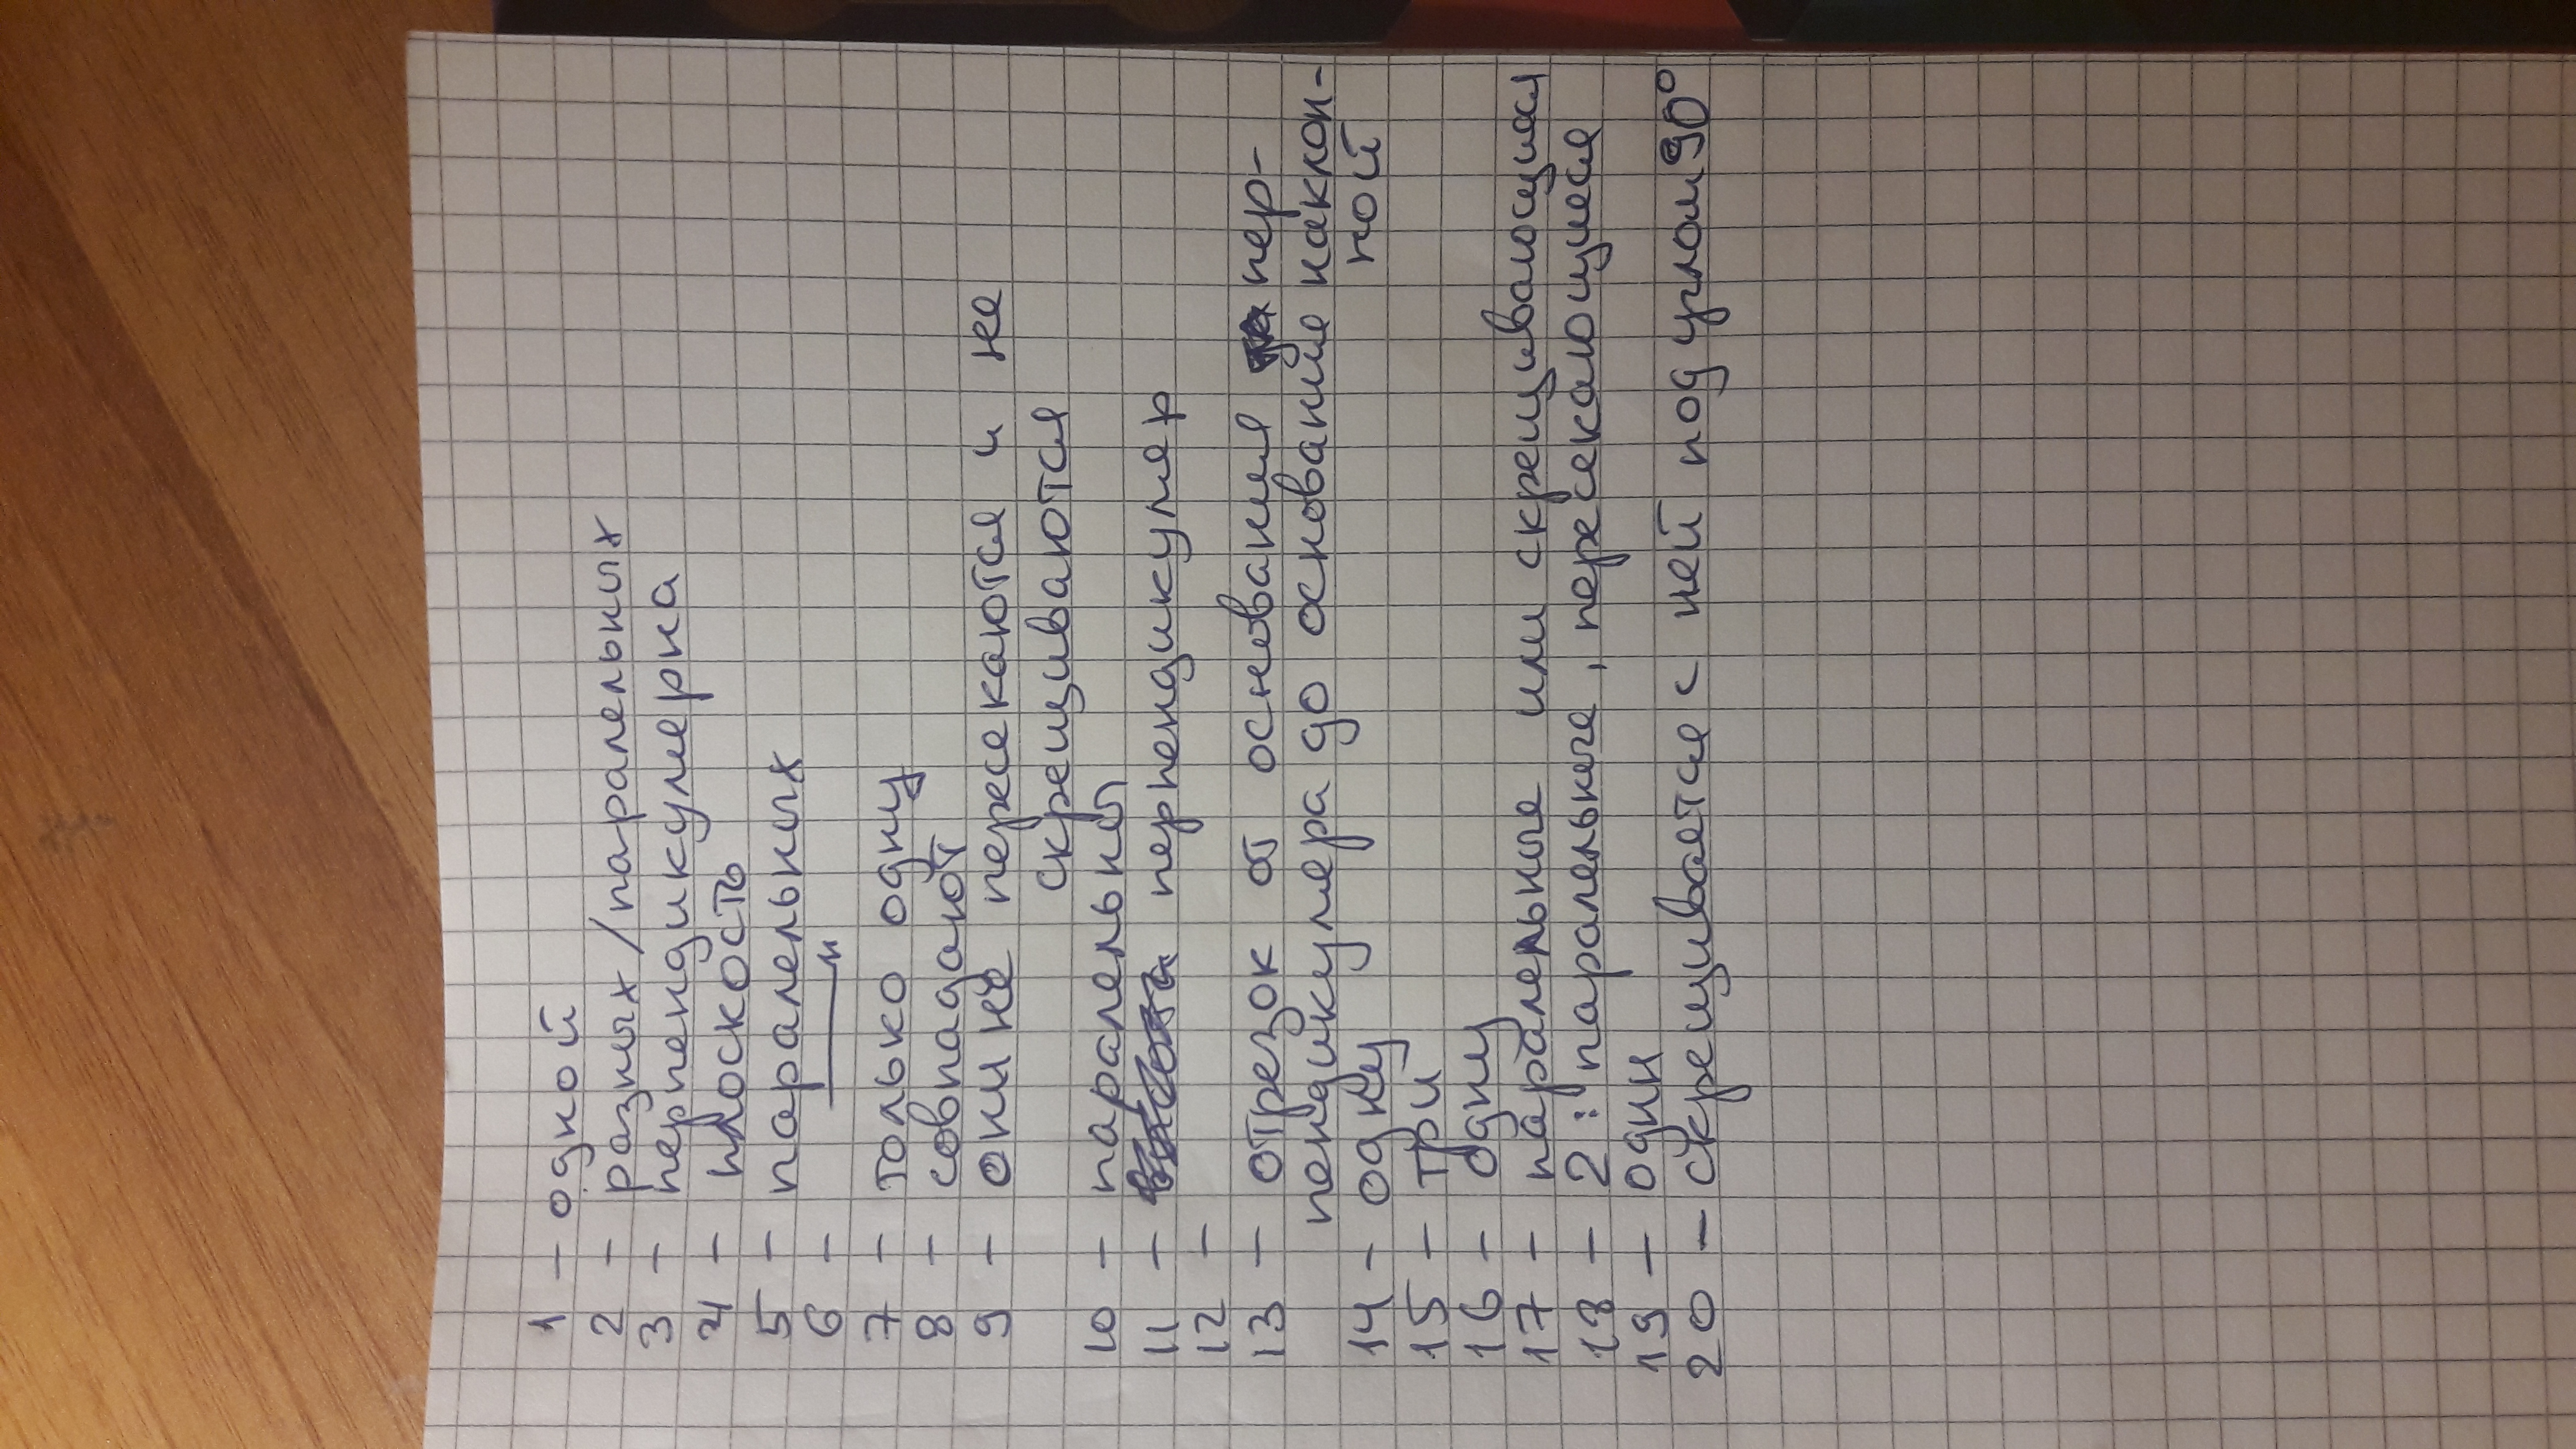 1 – одной
2 – разных / паралельных
3 – перпендикулярна
4 – плоскость
5 – паралельных
6 – ——"——
7 – только одну
8 – совпадают
9 – они не пересекаются и не
скрещиваются
10 – паралельны
11 – перпендикуляр
12 –
13 – отрезок от основания пер-
пендикуляра до основание наклон-
ной
14 – одну
15 – три
16 – одну
17 – паралельные или скрещивающиеся
18 – 2: паралельные, пересекающиеся
19 – один
20 – скрещивается с ней под углом 90°